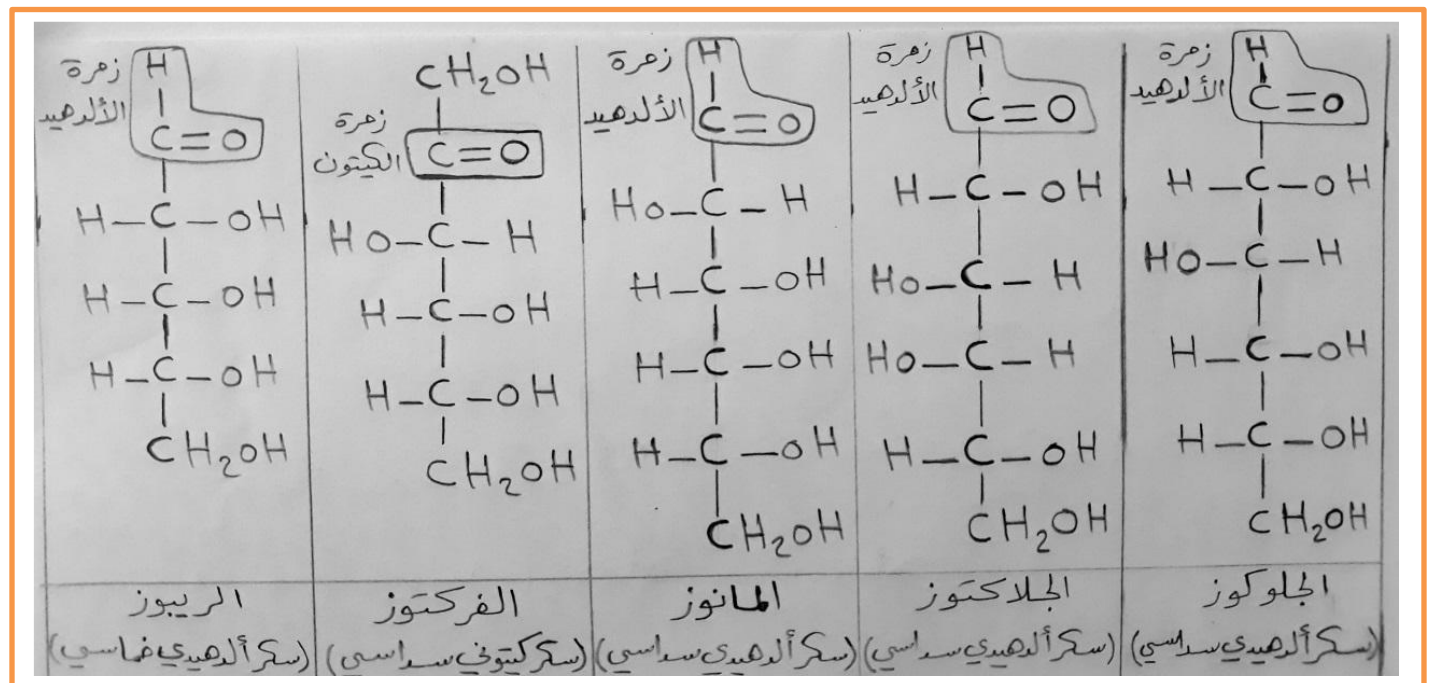 زمرة
الألدهيد
H
C=O
H-C-OH
HO-C-H
H-C-OH
H-C-OH
CH₂OH
الجلوكوز
(سكر ألدهيدي سداسي)
زمرة
الألدهيد
H
C=O
H-C-OH
HO-C-H
HO-C-H
H-C-OH
CH₂OH
الجلاكتوز
(سكر ألدهيدي سداسي)
زمرة
الألدهيد
H
C=O
HO-C-H
H-C-OH
H-C-OH
H-C-OH
CH₂OH
المانوز
(سكر ألدهيدي سداسي)
CH₂OH
زمرة
الكيتون
C=O
HO-C-H
H-C-OH
H-C-OH
CH₂OH
الفركتوز
(سكر كيتوني سداسي)
زمرة
الألدهيد
H
C=O
H-C-OH
H-C-OH
H-C-OH
CH₂OH
الريبوز
(سكر ألدهيدي خماسي)